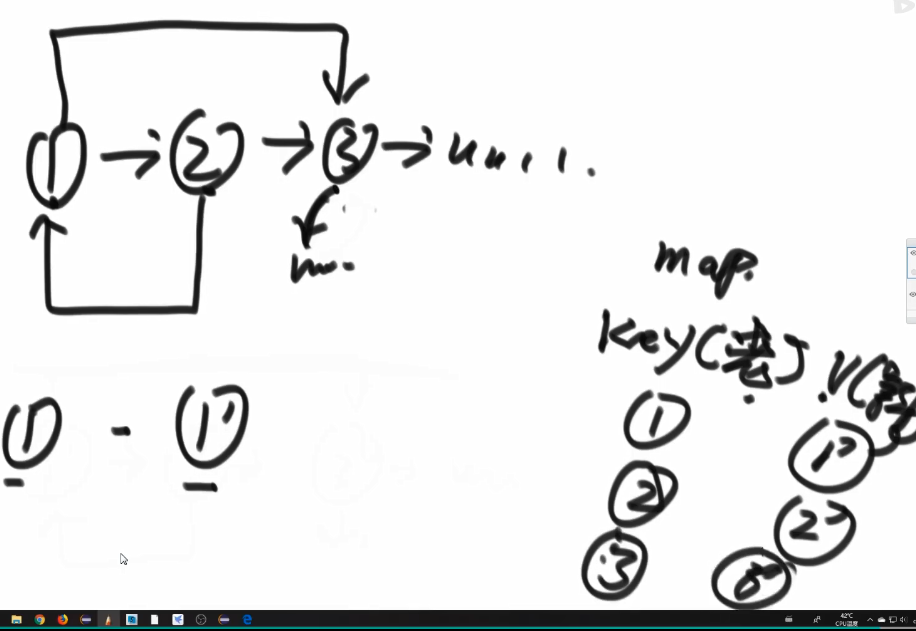 1 → 2 → 3 → null.
null.
map.
Key(老) V(新)
1 - 1'
1 1'
2 2'
3 3'
42℃
CPU温度